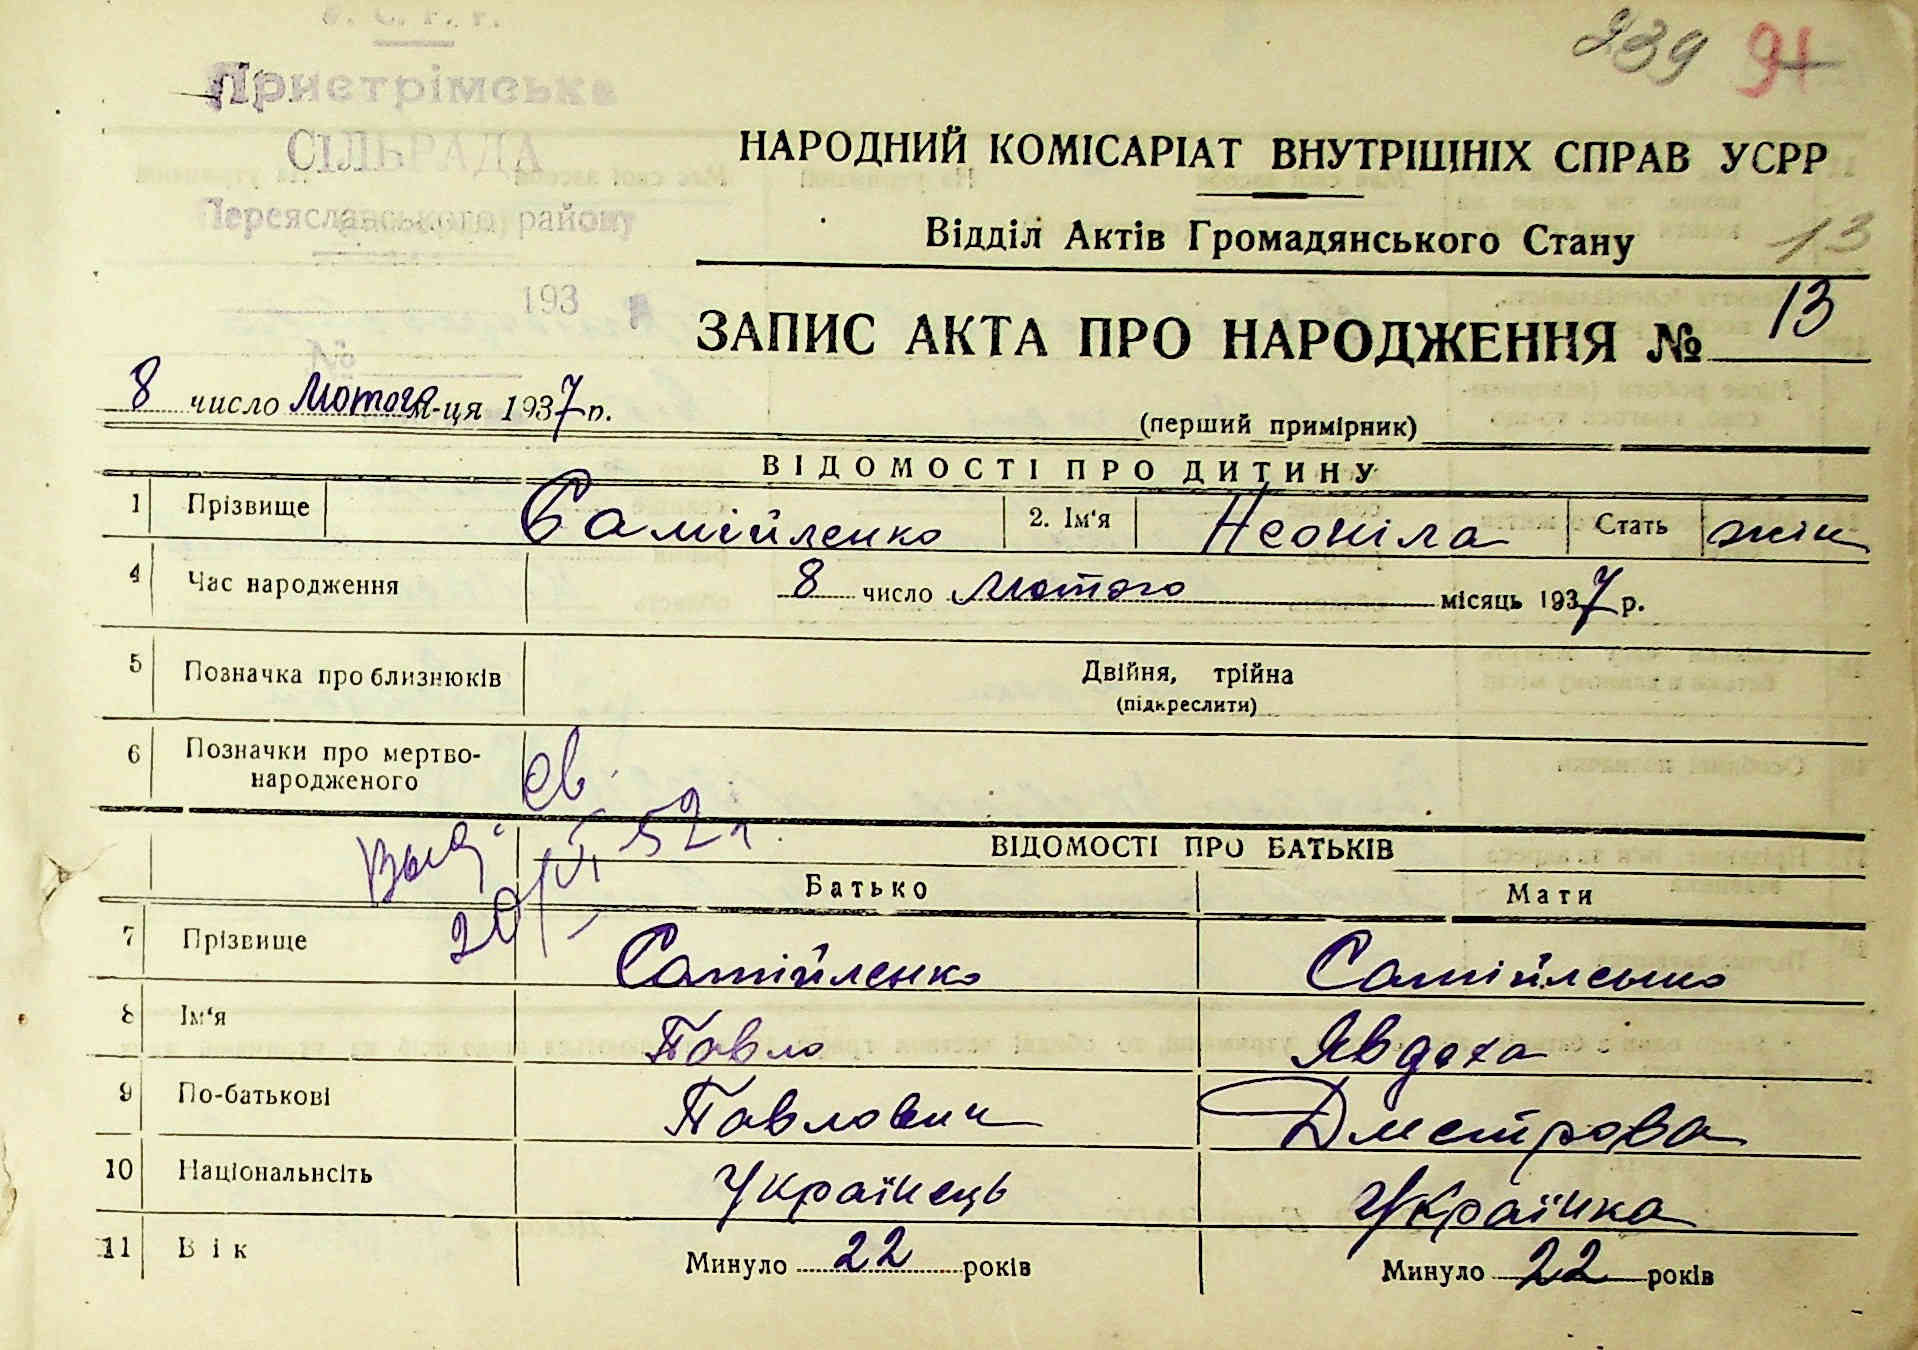 У. С. Р. Р.
Пристрімська
СІЛЬРАДА
Переяславського району
193
№
239 91
НАРОДНИЙ КОМІСАРІАТ ВНУТРІШНІХ СПРАВ УСРР
Відділ Актів Громадянського Стану
13
ЗАПИС АКТА ПРО НАРОДЖЕННЯ № 13
8 число Лютого м-ця 1937 р.
(перший примірник)
ВІДОМОСТІ ПРО ДИТИНУ
1 Прізвище Самійленко 2. Ім'я Неоніла Стать жін
4 Час народження 8 число лютого місяць 1937 р.
5 Позначка про близнюків Двійня, трійна
(підкреслити)
6 Позначки про мертво-
народженого
св.
20/VI 52 г
ВІДОМОСТІ ПРО БАТЬКІВ
Батько Мати
7 Прізвище Самійленко Самійленко
8 Ім'я Павло Явдоха
9 По-батькові Павлович Дметрова
10 Національнсіть Українець Українка
11 Вік Минуло 22 років Минуло 22 років